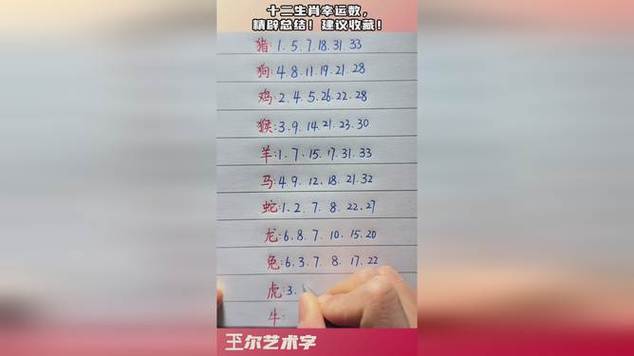 十二生肖幸运数，
精辟总结！建议收藏！
猪:1.5.7.18.31.33
狗:4.8.11.19.21.28
鸡:2.4.5.26.22.28
猴:3.9.14.21.23.30
羊:1.7.15.17.31.33
马:4.9.12.18.21.32
蛇:1.2.7.8.22.27
龙:6.8.7.10.15.20
兔:6.3.7.8.17.22
虎:3.
牛:
王尔艺术字